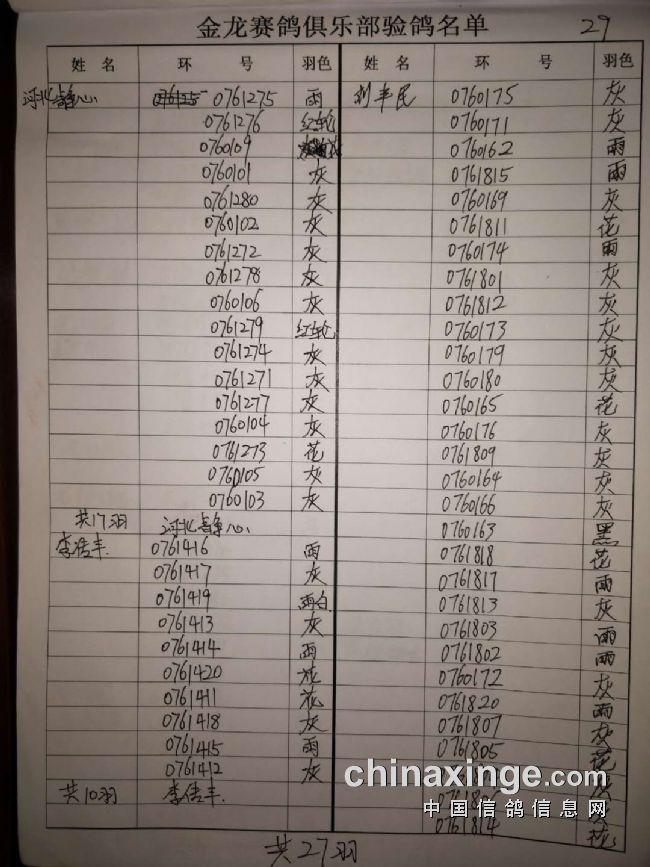 金龙赛鸽俱乐部验鸽名单 29
姓名 环号 羽色 姓名 环号 羽色
河北静心 0761275 雨
0761276 红轮
0760109
0760101 灰
0761280 灰
0760102 灰
0761272 灰
0761278 灰
0760106 灰
0761279 红轮
0761274 灰
0761271 灰
0761277 灰
0760104 灰
0761273 花
0760105 灰
0760103 灰
共17羽 河北静心
李倩丰 0761416 雨
0761417 灰
0761419 雨白
0761413 灰
0761414 雨
0761420 花
0761411 花
0761418 灰
0761415 雨
0761412 灰
共10羽 李倩丰
刘丰民 0760175 灰
0760171 灰
0760162 雨
0761815 雨
0760169 灰
0761811 花
0760174 雨
0761801 灰
0761812 灰
0760173 灰
0760179 灰
0760180 灰
0760165 花
0760176 灰
0761809 灰
0760164 灰
0760166 灰
0760163 黑
0761818 花
0761817 雨
0761813 灰
0761803 雨
0761802 雨
0760172 灰
0761820 雨
0761807 灰
0761805 花
0761814 花
共27羽
chinaxinge.com
中国信鸽信息网